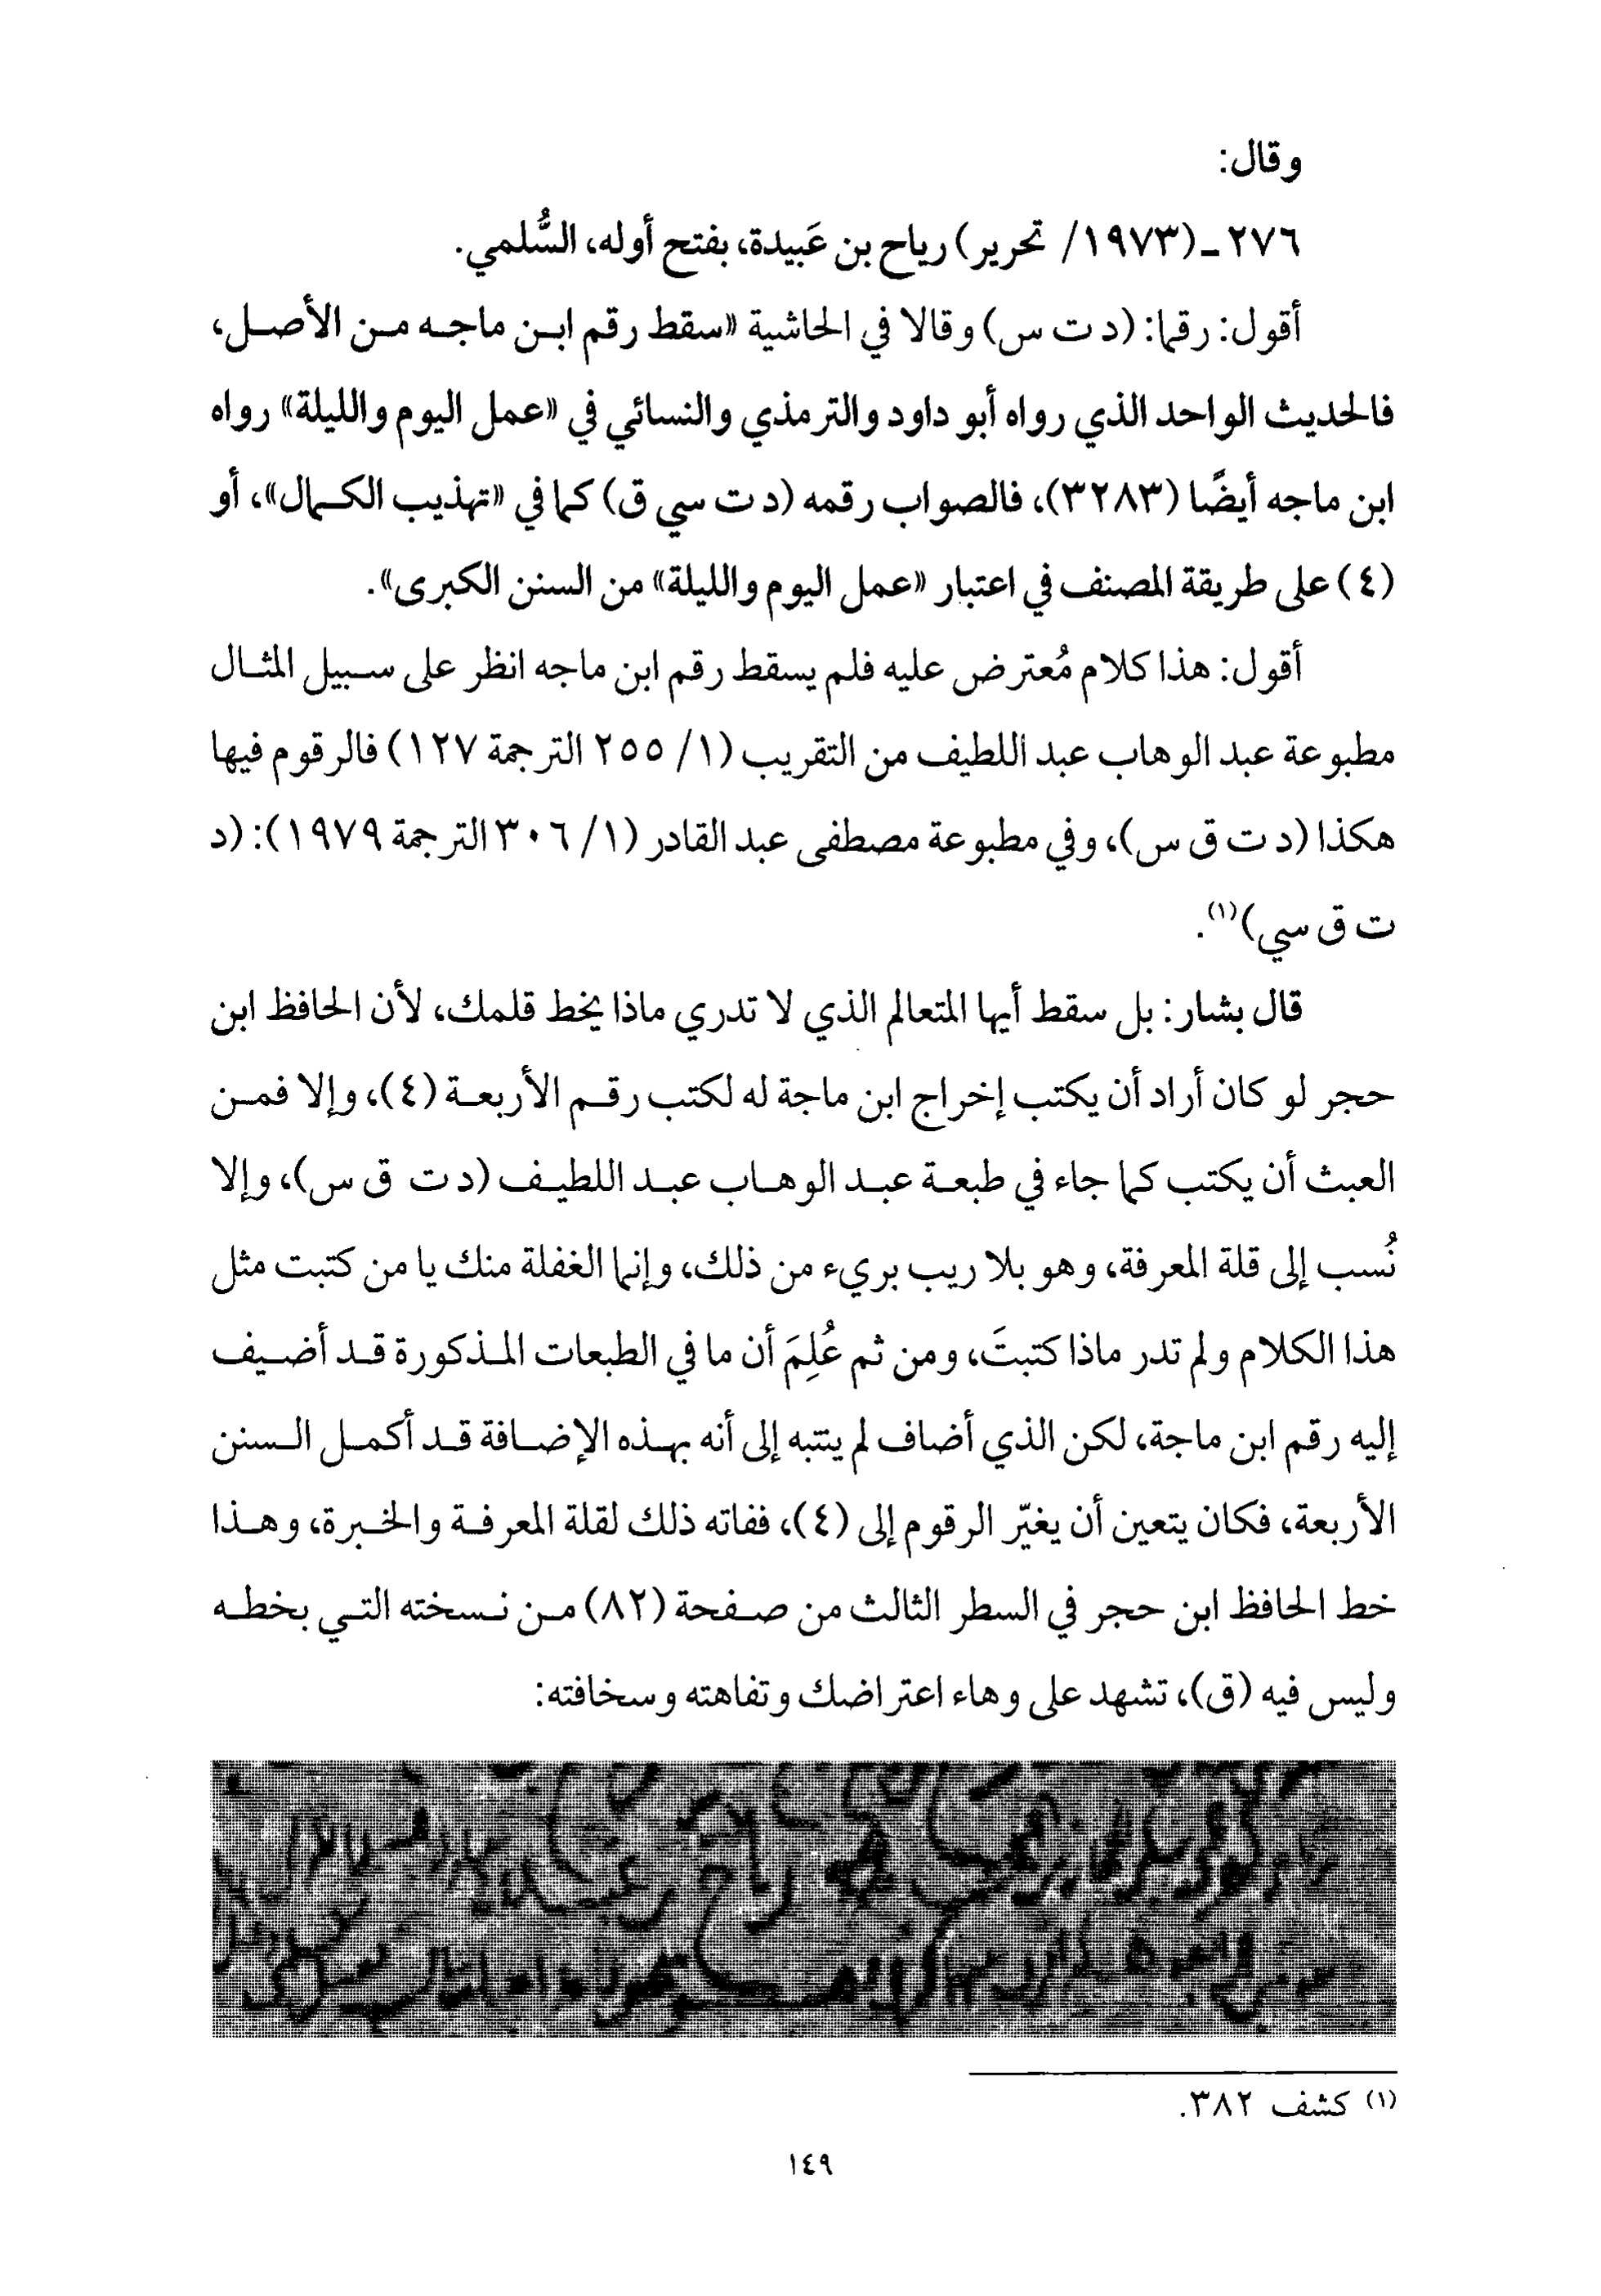 وقال:
٢٧٦ـ(١٩٧٣/ تحرير) رياح بن عَبيدة، بفتح أوله، السُّلمي.
أقول: رقما: (د ت س) وقالا في الحاشية «سقط رقم ابن ماجه من الأصل،
فالحديث الواحد الذي رواه أبو داود والترمذي والنسائي في «عمل اليوم والليلة» رواه
ابن ماجه أيضًا (٣٢٨٣)، فالصواب رقمه (د ت سي ق) كما في «تهذيب الكمال»، أو
(٤) على طريقة المصنف في اعتبار «عمل اليوم والليلة» من السنن الكبرى».
أقول: هذا كلام مُعترض عليه فلم يسقط رقم ابن ماجه انظر على سبيل المثال
مطبوعة عبد الوهاب عبد اللطيف من التقريب (١/ ٢٥٥ الترجمة ١٢٧) فالرقوم فيها
هكذا (د ت ق س)، وفي مطبوعة مصطفى عبد القادر (١/ ٣٠٦ الترجمة ١٩٧٩): (د
ت ق سي)(١).
قال بشار: بل سقط أيها المتعالم الذي لا تدري ماذا يخط قلمك، لأن الحافظ ابن
حجر لو كان أراد أن يكتب إخراج ابن ماجة له لكتب رقم الأربعة (٤)، وإلا فمن
العبث أن يكتب كما جاء في طبعة عبد الوهاب عبد اللطيف (د ت ق س)، وإلا
نُسب إلى قلة المعرفة، وهو بلا ريب بريء من ذلك، وإنما الغفلة منك يا من كتبت مثل
هذا الكلام ولم تدر ماذا كتبتَ، ومن ثم عُلِمَ أن ما في الطبعات المذكورة قد أضيف
إليه رقم ابن ماجة، لكن الذي أضاف لم ينتبه إلى أنه بهذه الإضافة قد أكمل السنن
الأربعة، فكان يتعين أن يغيّر الرقوم إلى (٤)، ففاته ذلك لقلة المعرفة والخبرة، وهذا
خط الحافظ ابن حجر في السطر الثالث من صفحة (٨٢) من نسخته التي بخطه
وليس فيه (ق)، تشهد على وهاء اعتراضك وتفاهته وسخافته:
(١) كشف ٣٨٢.
١٤٩